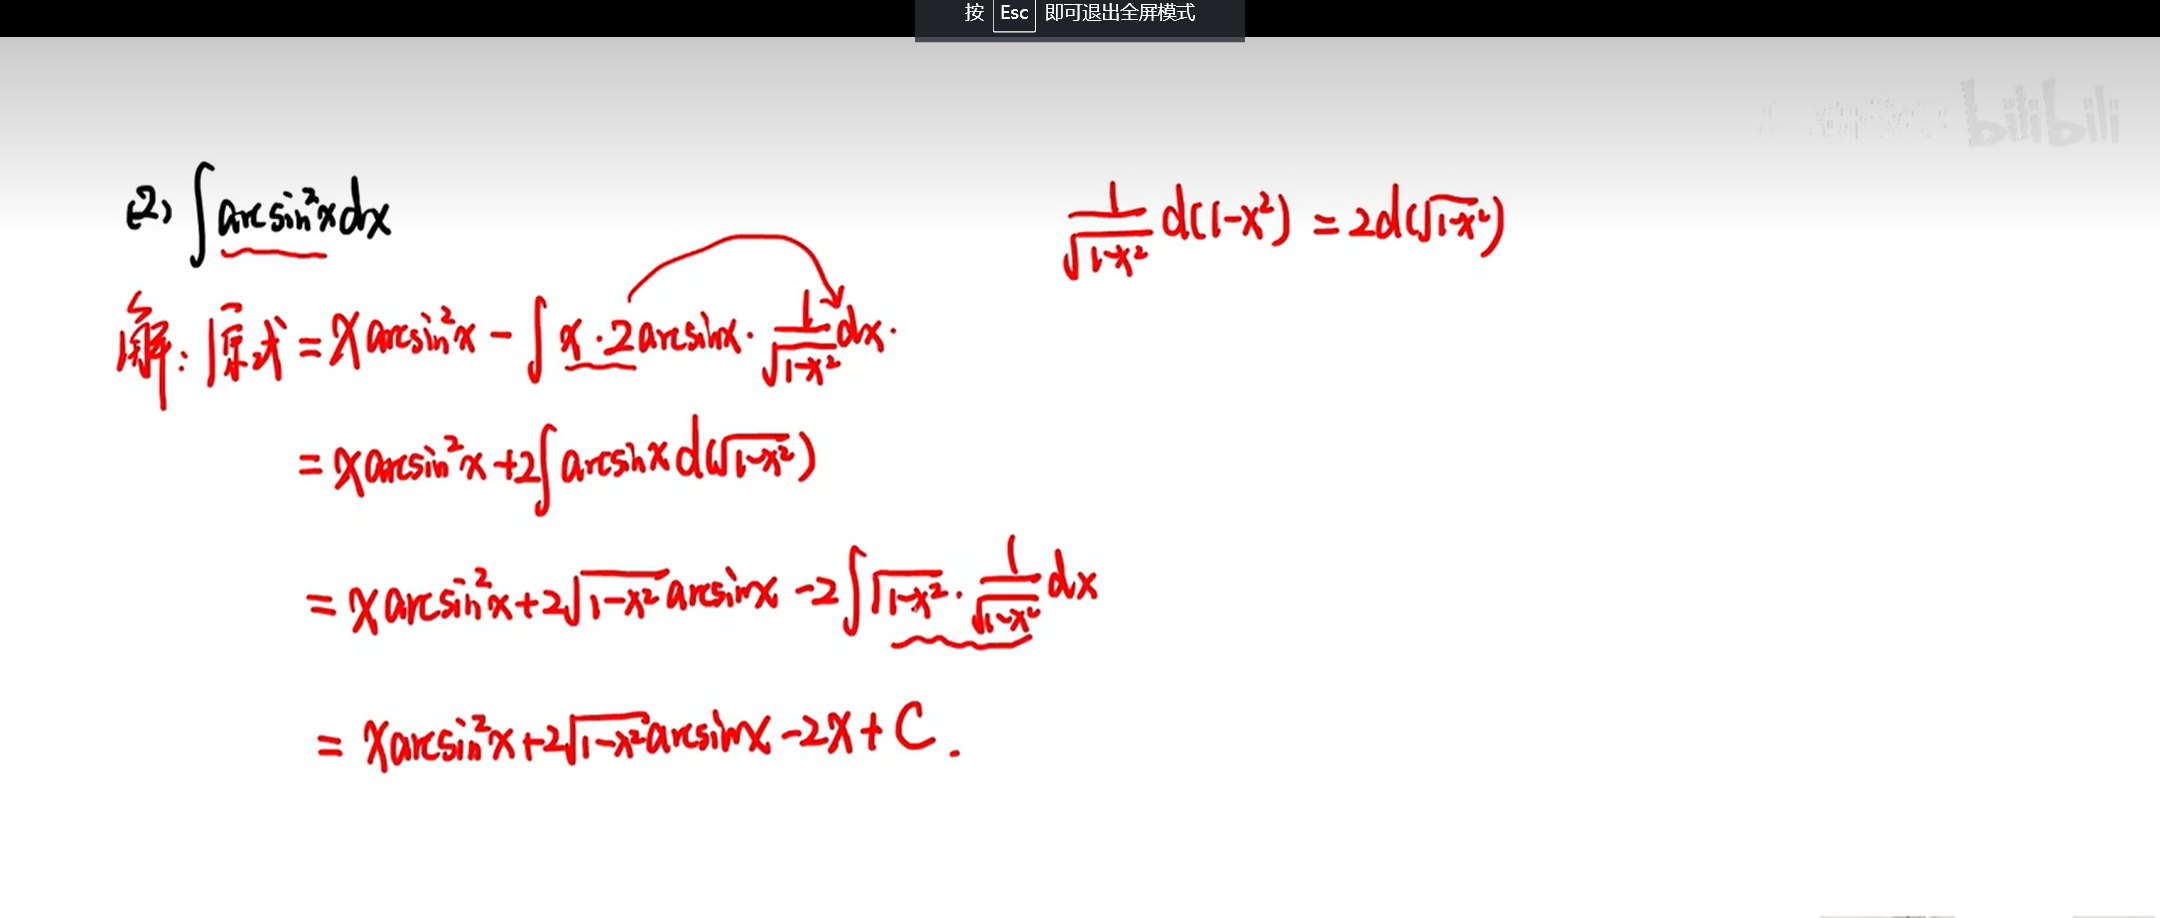 按 Esc 即可退出全屏模式
bilibili
(2) ∫arcsin²x dx
1/√(1-x²) d(1-x²) = 2d(√(1-x²))
解: 原式 = x arcsin²x - ∫ x · 2 arcsinx · 1/√(1-x²) dx.
= x arcsin²x + 2∫ arcsinx d(√(1-x²))
= x arcsin²x + 2√(1-x²) arcsinx - 2∫ √(1-x²) · 1/√(1-x²) dx
= x arcsin²x + 2√(1-x²) arcsinx - 2x + C .